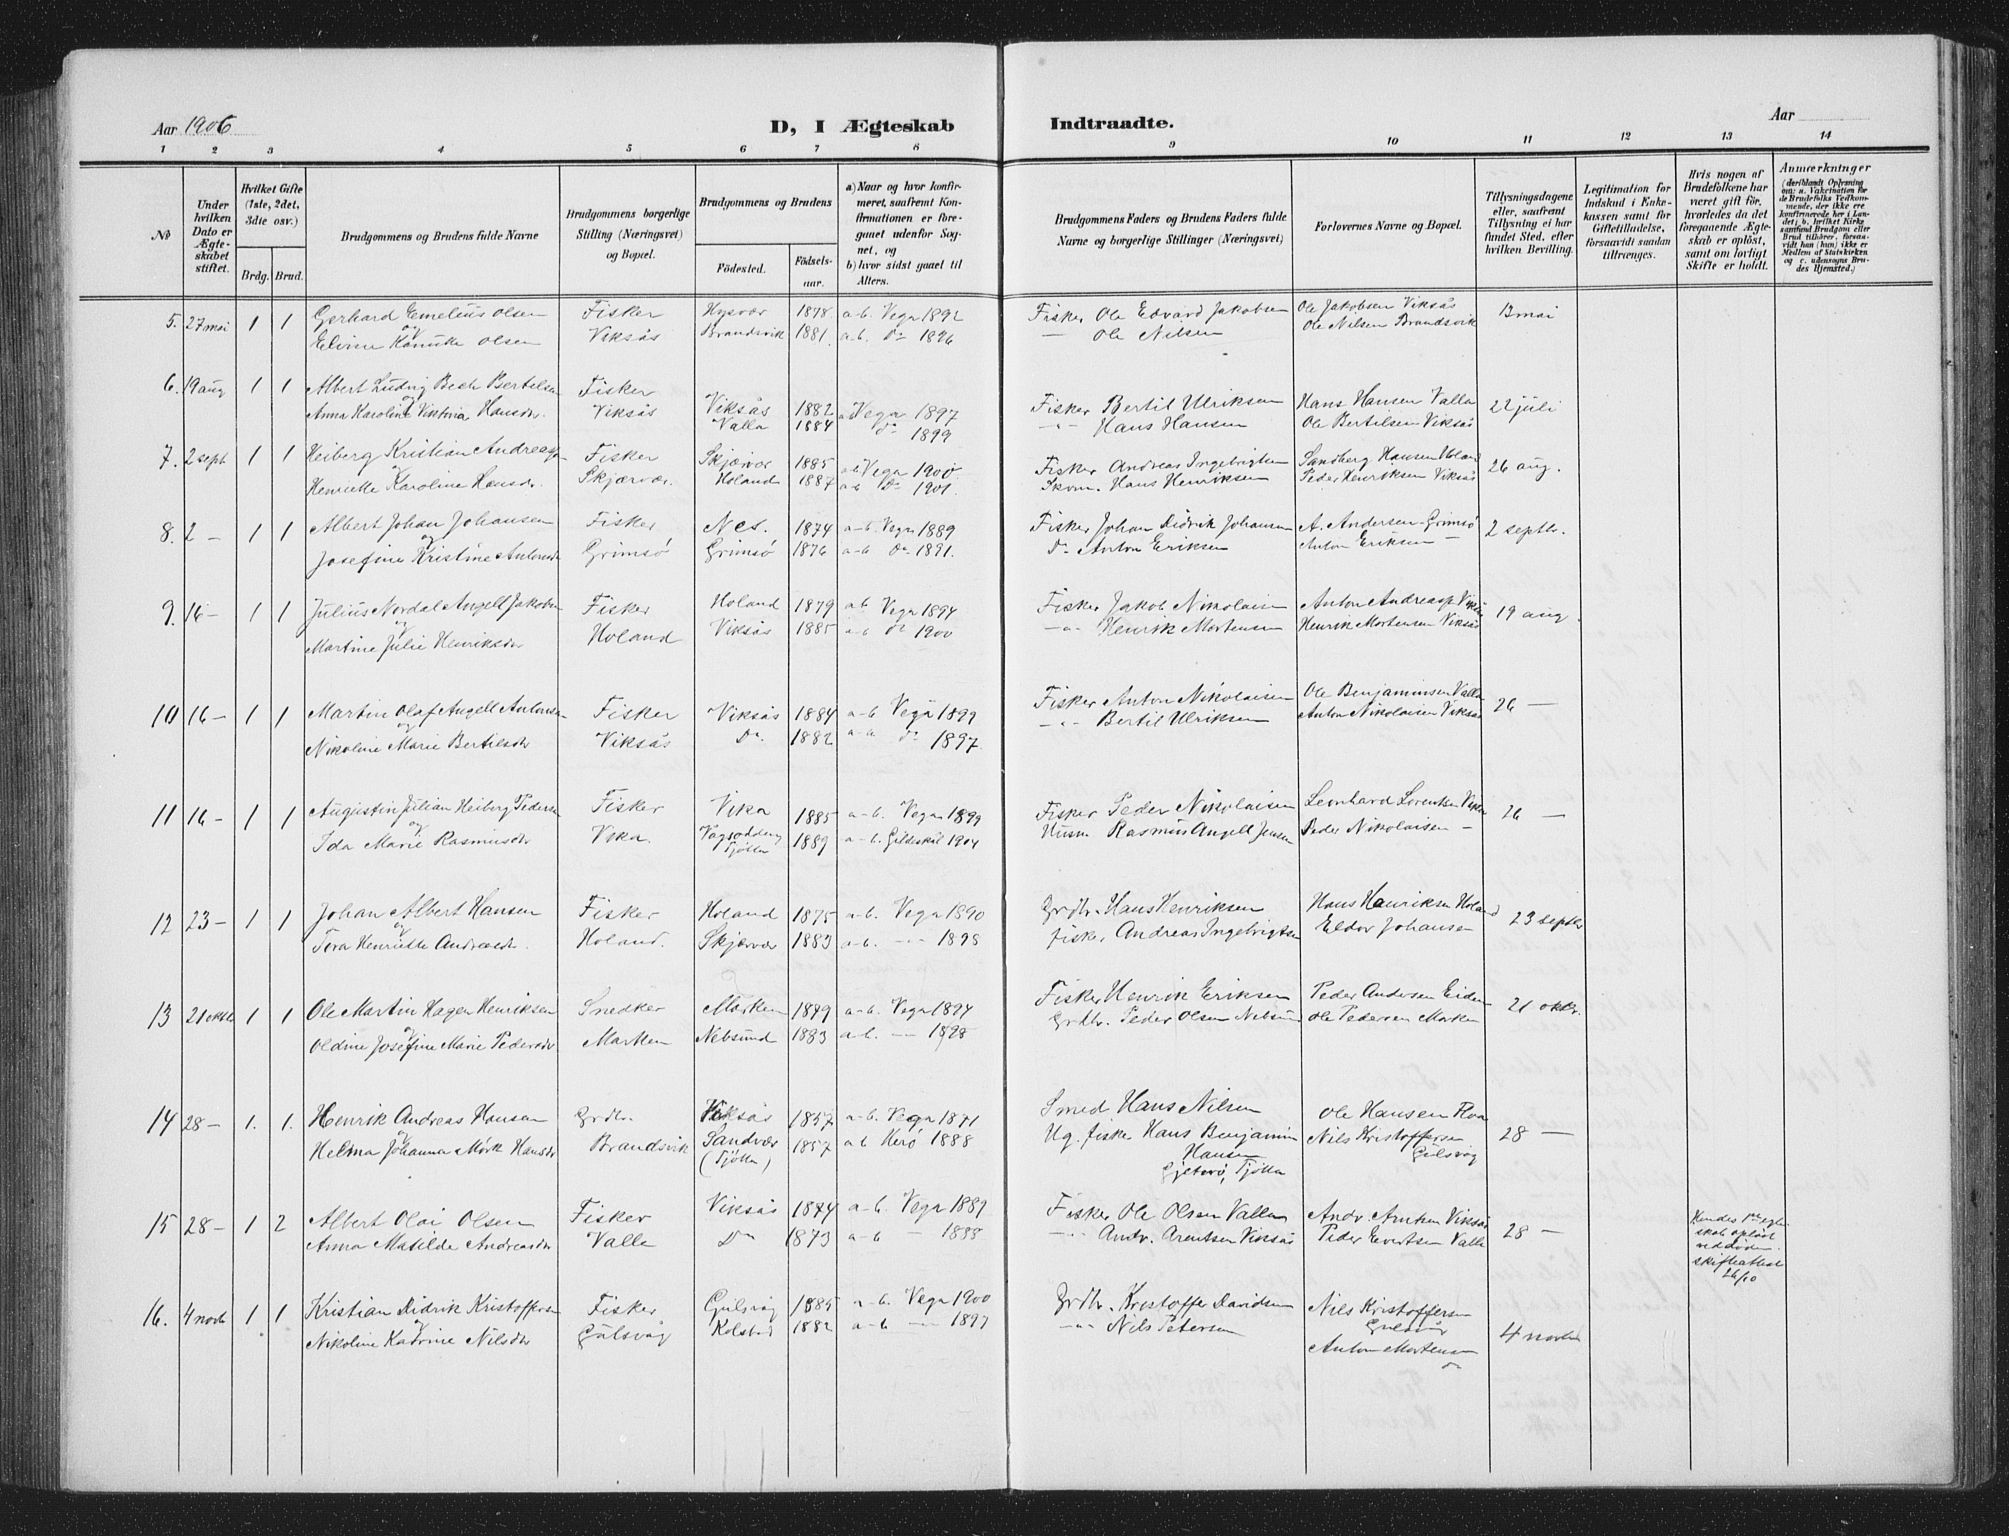 Aar 1906
D, I Ægteskab Indtraadte.
Aar
1 2 3 4 5 6 7 8 9 10 11 12 13 14
№
Under hvilken Dato er Ægteskabet stiftet.
Hvilket Gifte (1ste, 2det, 3die osv.)
Brdg. Brud.
Brudgommens og Brudens fulde Navne
Brudgommens borgerlige Stilling (Næringsvei) og Bopæl.
Brudgommens og Brudens
Fødested. Fødselsaar.
a) Naar og hvor konfirmeret, saafremt Konfirmationen er foregaaet udenfor Sognet, og
b) hvor sidst gaaet til Alters.
Brudgommens Faders og Brudens Faders fulde Navne og borgerlige Stillinger (Næringsvei)
Forlovernes Navne og Bopæl.
Tillysningsdagene eller, saafremt Tillysning ei har fundet Sted, efter hvilken Bevilling.
Legitimation for Indskud i Enkekassen samt for Giftetilladelse, forsaavidt saadan tiltrænges.
Hvis nogen af Brudefolkene har været gift før, hvorledes da det foregaaende Ægteskab er opløst, samt om lovligt Skifte er holdt.
Anmærkninger
5. 27 mai 1 1 Gerhard Emelius Olsen Fisker Hysvær 1878 a-b. Vega 1892 Fisker Ole Edvard Jakobsen Ole Jakobsen Viksås 13 mai
og
Elvine Olsen Viksås Brandsvik 1881. a-b. Do 1896 — Ole Nilsen Ole Nilsen Brandsvik
6. 19 aug 1 1 Albert Ludvig Bech Bertelsen Fisker
og
Anna Karoline Viktoria Hansdr. Viksås Viksås 1882 Vega 1897 Fisker Bertil Ulriksen Hans Hansen Valla 22 juli
Valla 1884 Do 1899 -"- Hans Hansen Ole Bertilsen Viksås
7. 2 sept 1 1 Heiberg Kristian Andreasen Fisker Skjærvær 1885 a-b Vega 1900 Fisker Andreas Ingebrigtsen Sandberg Hansen Holand 26 aug.
Henriette Karoline Hansdr. Skjærvær. Holand 1887 a-b Do 1901. Hans Henriksen Peder Henriksen Viksås
8. 2 — 1 1 Albert Johan Johansen Fisker Nes. 1874 a-b. Vega 1889 Fisker Johan Didrik Johansen A. Andersen Grimsø 2 septbr.
og
Josefine Kristine Antonsdr Grimsø Grimsø 1876 a-b Do 1891. Do Anton Eriksen Anton Eriksen —
9. 16 — 1 1 Julius Nordal Angell Jakobsen Fisker Holand 1879 a-b Vega 1894 Fisker Jakob Nikolaisen Anton Andreass. Viksås 19 aug.
og
Martine Julie Henriksdr Holand Viksås 1885 a-b Do 1900 -"- Henrik Mortensen Henrik Mortensen Viksås
10 16 — 1 1 Martin Olaf Angell Antonsen Fisker Viksås 1884 a-b Vega 1899 Fisker Anton Nikolaisen Ole Benjaminsen Valla 26 —
og
Nikoline Marie Bertilsdr Viksås Do. 1882 a-b Do 1897. -"- Bertil Ulriksen Anton Nikolaisen Viksås
11 16 — 1 1 Augustin Julian Heiberg Pedersen Fisker Vika 1885 a-b. Vega 1899 Fisker Peder Nikolaisen Leonhard Lorentsen Vika 26 —
og
Ida Marie Rasmusdr Vika. Tjøtta 1889 a-b. Gildeskål 1904 Husm Rasmus Angell Jensen Peder Nikolaisen —
12 23 — 1 1 Johan Albert Hansen Fisker Holand 1875 a-b. Vega 1890 Grdbr. Hans Henriksen Hans Henriksen Holand 23 septbr
og
Tora Henriette Andreasdr. Holand. Skjærvær 1883 a-b. — 1898 Fisker Andreas Ingebrigtsen Eldor Johansen
13 21 oktbr 1 1 Ole Martin Hagen Henriksen Snedker Marken 1879 a-b. Vega 1894 Fisker Henrik Eriksen Peder Andersen Eidem 21 oktbr.
og
Oldine Josefine Marie Pedersdr Marken Nebsund 1883 a-b. — 1898 Grdbr. Peder Olsen Nebsund Ole Pedersen Marken
14 28 — 1. 1. Henrik Andreas Hansen Grdbr. Viksås 1857 a-b. Vega 1871 Smed Hans Nilsen Ole Hansen Floa
og
Helma Johanna Mørk Hansdr Brandsvik Sandvær 1857 a-b Herø 1888 Ug. fisker Hans Benjamin Nils Kristoffersen 28 —
(Tjøtta) Hansen Gulsvåg
Gjeterø, Tjøtta
15 28 — 1 2 Albert Olai Olsen Fisker Viksås 1874 a-b. Vega 1889 Fisker Ole Olsen Valla Andr. Arntsen Viksås 28 —
Anna Matilde Andreasdr Valla Do 1873 a-b — 1888 -"- Andr. Arentsen Viksås Peder Evertsen Valla
Hendes 1ste egte-
skab opløst
ved døden.
skifteattest
26/10
16. 4 novb 1 1 Kristian Didrik Kristoffersen Fisker Gulsvåg 1885 a-b. Vega 1900 Grdbr. Kristoffer Davidsen Nils Kristoffersen
og Gulsvåg
Nikoline Katrine Nilsdr Gulsvåg Kolstad 1882 a-b — 1897 -"- Nils Petersen Anton Mortensen 4 novbr
Do